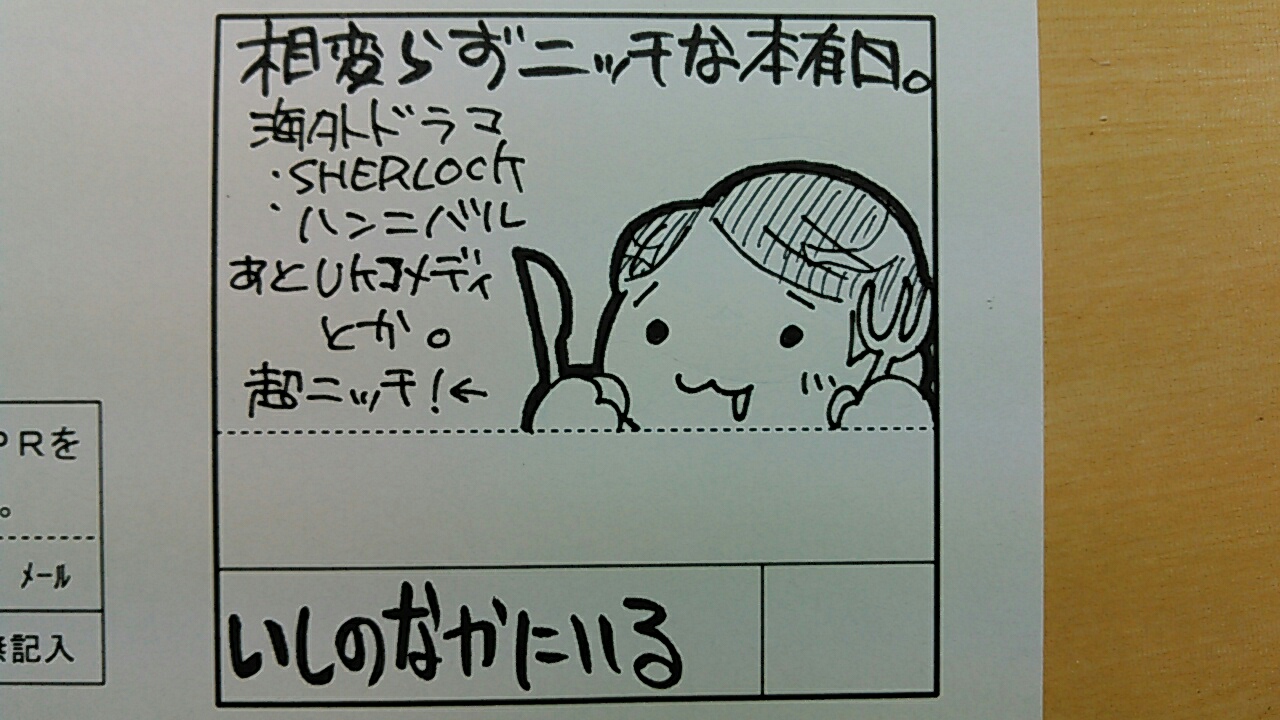 相変らずニッチな本有口。
海外ドラマ
・SHERLOCK
・ハンニバル
あとUKコメディ
とか。
超ニッチ!←
いしのなかにいる
PRを
。
メール
記入